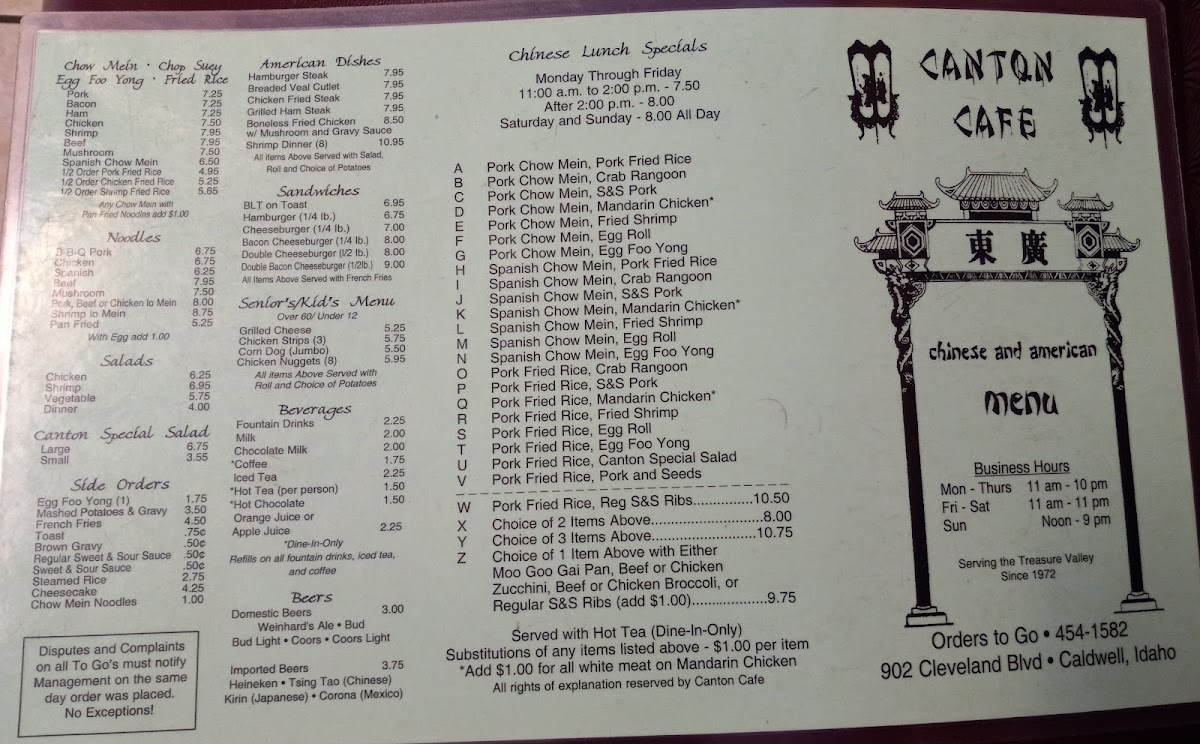 Chow Mein · Chop Suey
Egg Foo Yong · Fried Rice
Pork 7.25
Bacon 7.25
Ham 7.25
Chicken 7.50
Shrimp 7.95
Beef 7.95
Mushroom 7.50
Spanish Chow Mein 6.50
1/2 Order Pork Fried Rice 4.95
1/2 Order Chicken Fried Rice 5.25
1/2 Order Shrimp Fried Rice 5.65
Any Chow Mein with
Pan Fried Noodles add $1.00
Noodles
B-B-Q Pork 6.75
Chicken 6.75
Spanish 6.25
Beef 7.95
Mushroom 7.50
Pork, Beef or Chicken lo Mein 8.00
Shrimp lo Mein 8.75
Pan Fried 5.25
With Egg add 1.00
Salads
Chicken 6.25
Shrimp 6.95
Vegetable 5.75
Dinner 4.00
Canton Special Salad
Large 6.75
Small 3.55
Side Orders
Egg Foo Yong (1) 1.75
Mashed Potatoes & Gravy 3.50
French Fries 4.50
Toast .75¢
Brown Gravy .50¢
Regular Sweet & Sour Sauce .50¢
Sweet & Sour Sauce .50¢
Steamed Rice 2.75
Cheesecake 4.25
Chow Mein Noodles 1.00
Disputes and Complaints
on all To Go's must notify
Management on the same
day order was placed.
No Exceptions!
American Dishes
Hamburger Steak 7.95
Breaded Veal Cutlet 7.95
Chicken Fried Steak 7.95
Grilled Ham Steak 7.95
Boneless Fried Chicken 8.50
w/ Mushroom and Gravy Sauce
Shrimp Dinner (8) 10.95
All items Above Served with Salad,
Roll and Choice of Potatoes
Sandwiches
BLT on Toast 6.95
Hamburger (1/4 lb.) 6.75
Cheeseburger (1/4 lb.) 7.00
Bacon Cheeseburger (1/4 lb.) 8.00
Double Cheeseburger (1/2 lb.) 8.00
Double Bacon Cheeseburger (1/2lb.) 9.00
All Items Above Served with French Fries
Senior's/Kid's Menu
Over 60/ Under 12
Grilled Cheese 5.25
Chicken Strips (3) 5.75
Corn Dog (Jumbo) 5.50
Chicken Nuggets (8) 5.95
All items Above Served with
Roll and Choice of Potatoes
Beverages
Fountain Drinks 2.25
Milk 2.00
Chocolate Milk 2.00
*Coffee 1.75
Iced Tea 2.25
*Hot Tea (per person) 1.50
*Hot Chocolate 1.50
Orange Juice or
Apple Juice 2.25
*Dine-In-Only
Refills on all fountain drinks, iced tea,
and coffee
Beers
Domestic Beers 3.00
Weinhard's Ale • Bud
Bud Light • Coors • Coors Light
Imported Beers 3.75
Heineken • Tsing Tao (Chinese)
Kirin (Japanese) • Corona (Mexico)
Chinese Lunch Specials
Monday Through Friday
11:00 a.m. to 2:00 p.m. - 7.50
After 2:00 p.m. - 8.00
Saturday and Sunday - 8.00 All Day
A Pork Chow Mein, Pork Fried Rice
B Pork Chow Mein, Crab Rangoon
C Pork Chow Mein, S&S Pork
D Pork Chow Mein, Mandarin Chicken*
E Pork Chow Mein, Fried Shrimp
F Pork Chow Mein, Egg Roll
G Pork Chow Mein, Egg Foo Yong
H Spanish Chow Mein, Pork Fried Rice
I Spanish Chow Mein, Crab Rangoon
J Spanish Chow Mein, S&S Pork
K Spanish Chow Mein, Mandarin Chicken*
L Spanish Chow Mein, Fried Shrimp
M Spanish Chow Mein, Egg Roll
N Spanish Chow Mein, Egg Foo Yong
O Pork Fried Rice, Crab Rangoon
P Pork Fried Rice, S&S Pork
Q Pork Fried Rice, Mandarin Chicken*
R Pork Fried Rice, Fried Shrimp
S Pork Fried Rice, Egg Roll
T Pork Fried Rice, Egg Foo Yong
U Pork Fried Rice, Canton Special Salad
V Pork Fried Rice, Pork and Seeds
W Pork Fried Rice, Reg S&S Ribs...............10.50
X Choice of 2 Items Above.........................8.00
Y Choice of 3 Items Above.......................10.75
Z Choice of 1 Item Above with Either
Moo Goo Gai Pan, Beef or Chicken
Zucchini, Beef or Chicken Broccoli, or
Regular S&S Ribs (add $1.00)...................9.75
Served with Hot Tea (Dine-In-Only)
Substitutions of any items listed above - $1.00 per item
*Add $1.00 for all white meat on Mandarin Chicken
All rights of explanation reserved by Canton Cafe
CANTON
CAFE
東廣
chinese and american
menu
Business Hours
Mon - Thurs 11 am - 10 pm
Fri - Sat 11 am - 11 pm
Sun Noon - 9 pm
Serving the Treasure Valley
Since 1972
Orders to Go • 454-1582
902 Cleveland Blvd • Caldwell, Idaho